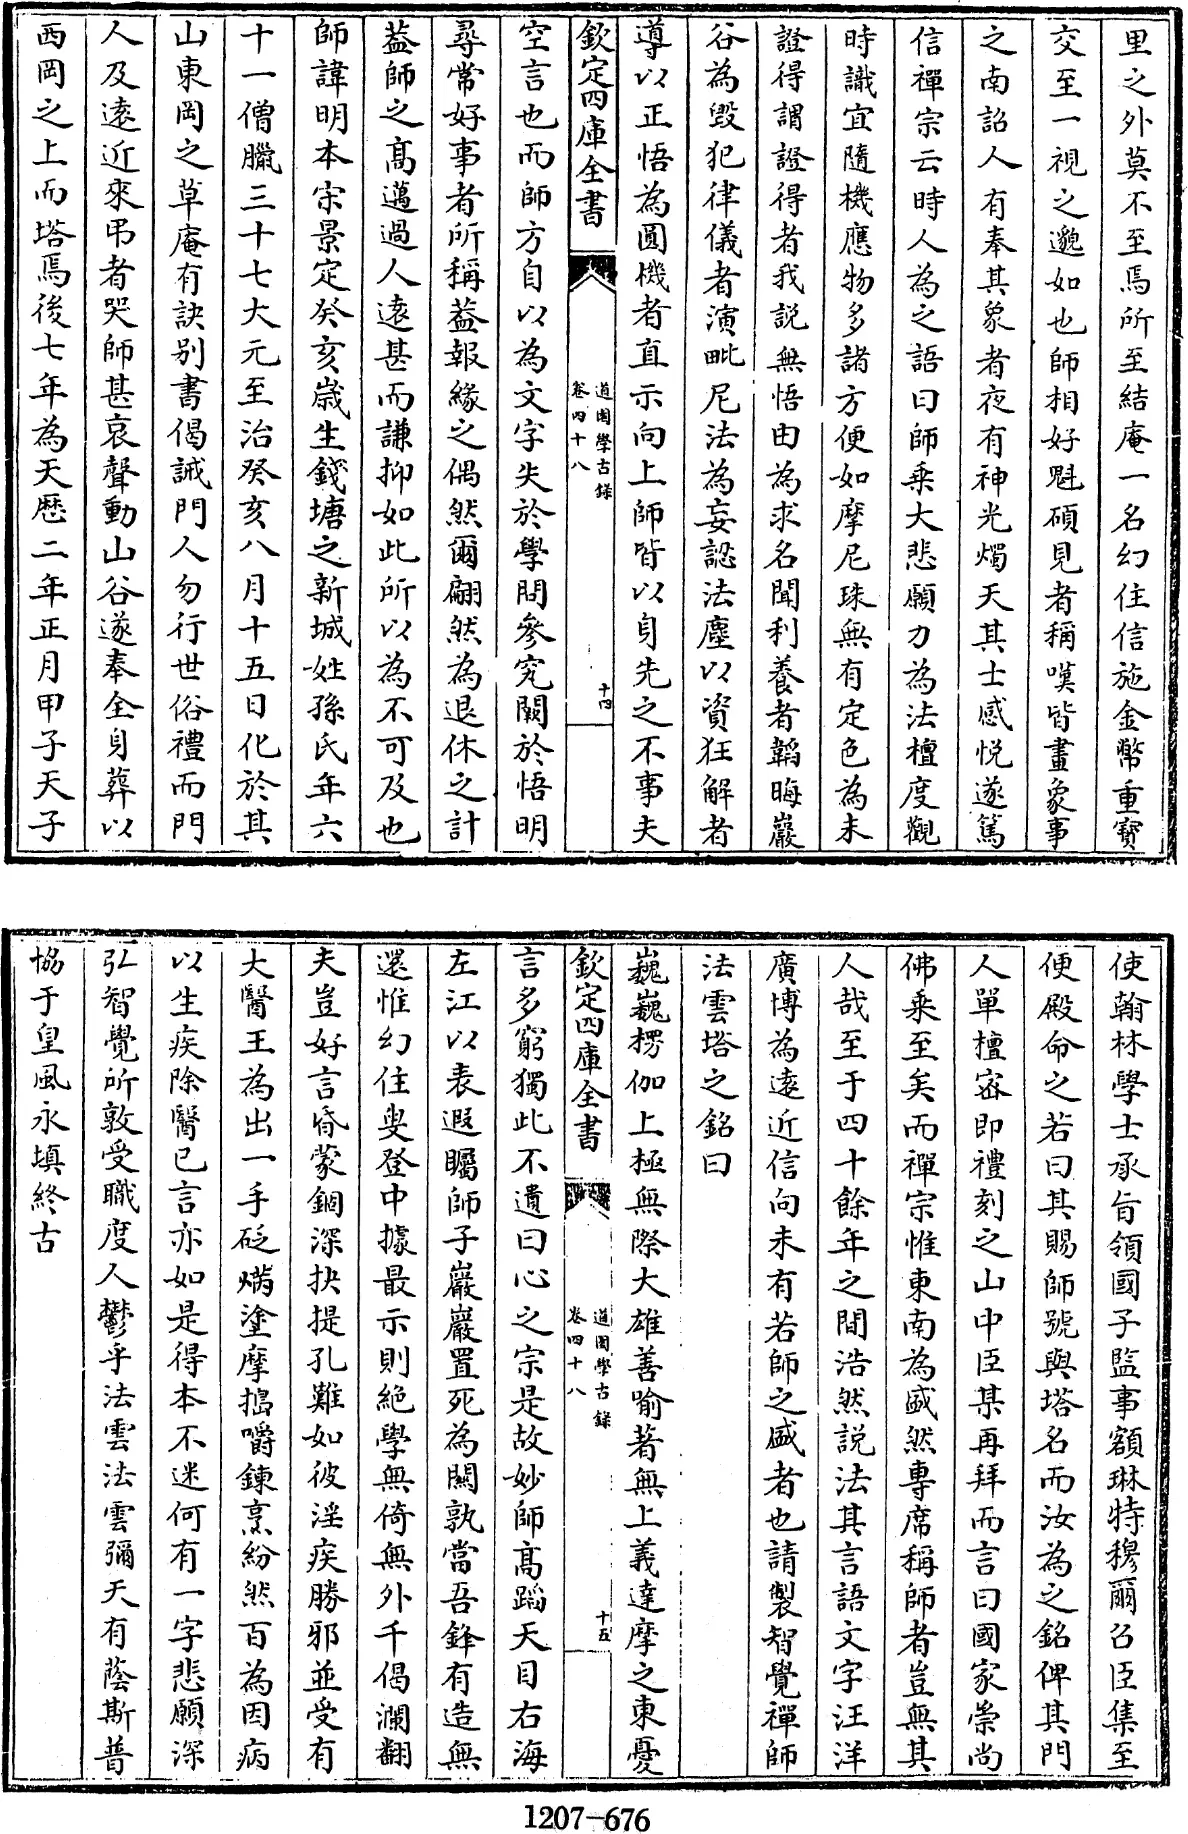 里之外莫不至焉所至結庵一名幻住信施金幣重寶
交至一視之邈如也師相好魁碩見者稱嘆皆畫象事
之南詔人有奉其象者夜有神光燭天其士感悦遂篤
信禪宗云時人為之語曰師乘大悲願力為法檀度觀
時識宜隨機應物多諸方便如摩尼珠無有定色為未
證得謂證得者我説無悟由為求名聞利養者韜晦巖
谷為毁犯律儀者演毗尼法為妄認法塵以資狂解者
導以正悟為圓機者直示向上師皆以身先之不事夫
欽定四庫全書
道園學古録
卷四十八
十四
空言也而師方自以為文字失於學問參究闕於悟明
尋常好事者所稱葢報緣之偶然爾翩然為退休之計
葢師之髙邁過人逺甚而謙抑如此所以為不可及也
師諱明本宋景定癸亥嵗生錢塘之新城姓孫氏年六
十一僧臘三十七大元至治癸亥八月十五日化於其
山東岡之草庵有訣别書偈誡門人勿行世俗禮而門
人及逺近來弔者哭師甚哀聲動山谷遂奉全身葬以
西岡之上而塔焉後七年為天歴二年正月甲子天子
使翰林學士承旨領國子監事額琳特穆爾召臣集至
便殿命之若曰其賜師號與塔名而汝為之銘俾其門
人單檀宻即禮刻之山中臣某再拜而言曰國家崇尚
佛乘至矣而禪宗惟東南為盛然專席稱師者豈無其
人哉至于四十餘年之間浩然説法其言語文字汪洋
廣博為逺近信向未有若師之盛者也請製智覺禪師
法雲塔之銘曰
巍巍楞伽上極無際大雄善喻著無上義達摩之東憂
欽定四庫全書
道園學古録
卷四十八
十五
言多窮獨此不遺曰心之宗是故妙師髙蹈天目右海
左江以表遐矚師子巖巖置死為關孰當吾鋒有造無
還惟幻住叟登中據最示則絶學無倚無外千偈瀾翻
夫豈好言昏蒙錮深抉提孔難如彼淫疾勝邪並受有
大醫王為出一手砭焫塗摩擣嚼鍊烹紛然百為因病
以生疾除醫已言亦如是得本不迷何有一字悲願深
弘智覺所敦受職度人鬱乎法雲法雲彌天有蔭斯普
協于皇風永填終古
1207-676